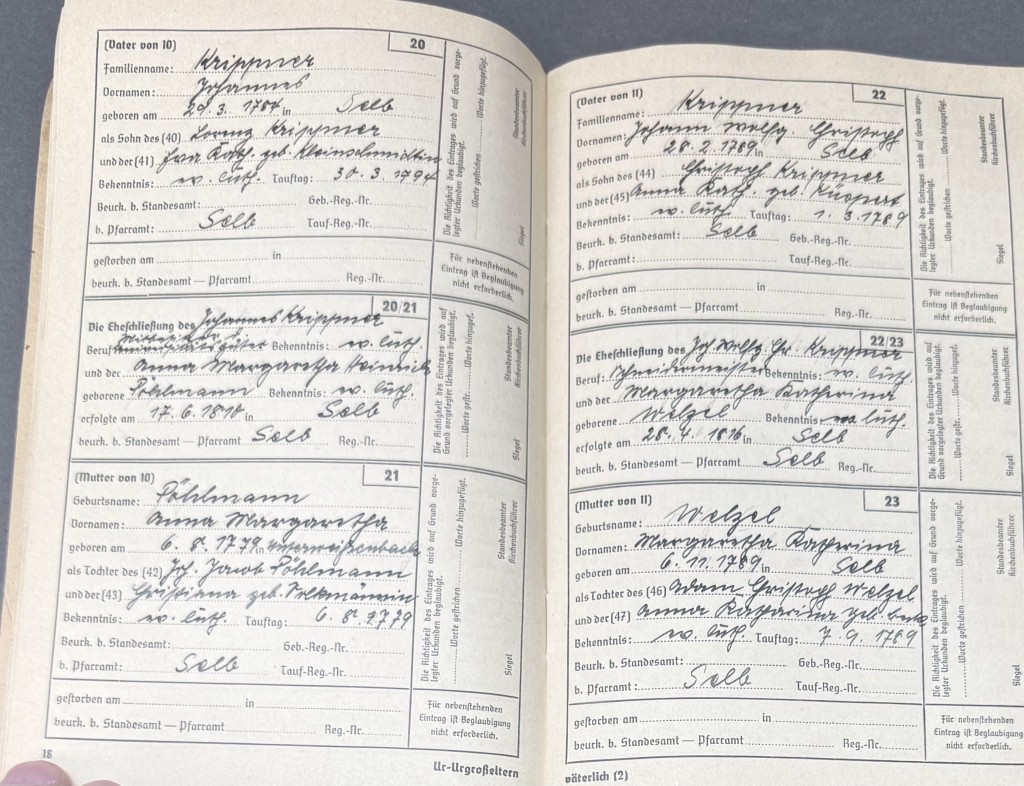 (Vater von 10) 20
Familienname: Krippner
Vornamen: Johannes
geboren am 29. 3. 1784 in Selb
als Sohn des (40) Lorenz Krippner
und der (41) Eva Kath. geb. Kleinschmidtin
Bekenntnis: ev. luth. Tauftag: 30. 3. 1794
Beurk. b. Standesamt: Geb.-Reg.-Nr.
b. Pfarramt: Selb Tauf-Reg.-Nr.
gestorben am in
beurk. b. Standesamt — Pfarramt Reg.-Nr.
Die Richtigkeit des Eintrages wird auf Grund vorge-
legter Urkunden beglaubigt.
Worte gestrichen Worte hinzugefügt.
Standesbeamter
Kirchenbuchführer
Siegel
Für nebenstehenden
Eintrag ist Beglaubigung
nicht erforderlich.
20/21
Die Eheschließung des Johannes Krippner
Beruf Bekenntnis: ev. luth.
und der Anna Margaretha
geborene Pöhlmann Bekenntnis: ev. luth.
erfolgte am 17. 6. 1810 in Selb
beurk. b. Standesamt — Pfarramt Selb Reg.-Nr.
Die Richtigkeit des Eintrages wird auf
Grund vorgelegter Urkunden beglaubigt.
Worte gestr. Worte hinzugef.
Standesbeamter
Kirchenbuchführer
Siegel
(Mutter von 10) 21
Geburtsname: Pöhlmann
Vornamen: Anna Margaretha
geboren am 6. 8. 1779 in
als Tochter des (42) Joh. Jacob Pöhlmann
und der (43) Christiana geb.
Bekenntnis: ev. luth. Tauftag: 6. 8. 1779
Beurk. b. Standesamt: Geb.-Reg.-Nr.
b. Pfarramt: Selb Tauf-Reg.-Nr.
gestorben am in
beurk. b. Standesamt — Pfarramt Reg.-Nr.
Die Richtigkeit des Eintrages wird auf Grund vorge-
legter Urkunden beglaubigt.
Worte gestrichen Worte hinzugefügt.
Standesbeamter
Kirchenbuchführer
Siegel
Für nebenstehenden
Eintrag ist Beglaubigung
nicht erforderlich.
16
Ur-Urgroßeltern
(Vater von 11) 22
Familienname: Krippner
Vornamen: Johann Wolfg. Christoph
geboren am 28. 2. 1789 in Selb
als Sohn des (44) Christoph Krippner
und der (45) Anna Kath. geb. Küspert
Bekenntnis: ev. luth. Tauftag: 1. 3. 1789
Beurk. b. Standesamt: Selb Geb.-Reg.-Nr.
b. Pfarramt: Tauf-Reg.-Nr.
gestorben am in
beurk. b. Standesamt — Pfarramt Reg.-Nr.
Die Richtigkeit des Eintrages wird auf Grund vorge-
legter Urkunden beglaubigt.
Worte gestrichen Worte hinzugefügt.
Standesbeamter
Kirchenbuchführer
Siegel
Für nebenstehenden
Eintrag ist Beglaubigung
nicht erforderlich.
22/23
Die Eheschließung des Joh Wolfg. Chr. Krippner
Beruf: Schneidermeister Bekenntnis: ev. luth
und der Margaretha Katherina
geborene Welzel Bekenntnis: ev. luth.
erfolgte am 28. 4. 1816 in Selb
beurk. b. Standesamt — Pfarramt Selb Reg.-Nr.
Die Richtigkeit des Eintrages wird auf
Grund vorgelegter Urkunden beglaubigt.
Worte gestr. Worte hinzugef.
Standesbeamter
Kirchenbuchführer
Siegel
(Mutter von 11) 23
Geburtsname: Welzel
Vornamen: Margaretha Katherina
geboren am 6. 11. 1789 in Selb
als Tochter des (46) Adam Christoph Welzel
und der (47) Anna Katharina geb.
Bekenntnis: ev. luth. Tauftag: 7. 9. 1789
Beurk. b. Standesamt: Geb.-Reg.-Nr.
b. Pfarramt: Selb Tauf-Reg.-Nr.
gestorben am in
beurk. b. Standesamt — Pfarramt Reg.-Nr.
Die Richtigkeit des Eintrages wird auf Grund vorge-
legter Urkunden beglaubigt.
Worte gestrichen Worte hinzugefügt.
Standesbeamter
Kirchenbuchführer
Siegel
Für nebenstehenden
Eintrag ist Beglaubigung
nicht erforderlich.
väterlich (2)